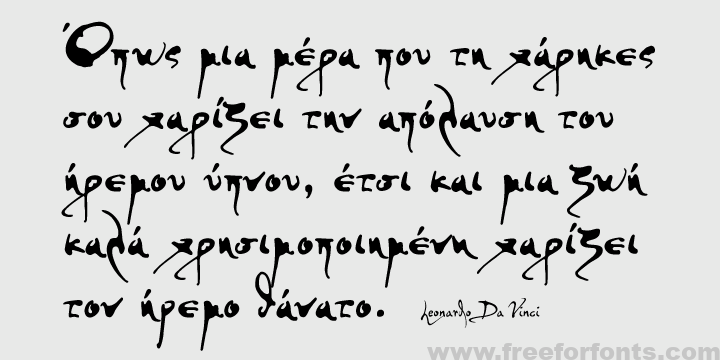 Όπως μια μέρα που τη χάρηκες
σου χαρίζει την απόλαυση του
ήρεμου ύπνου, έτσι και μια ζωή
καλά χρησιμοποιημένη χαρίζει
τον ήρεμο θάνατο. Leonardo Da Vinci
www.freeforfonts.com